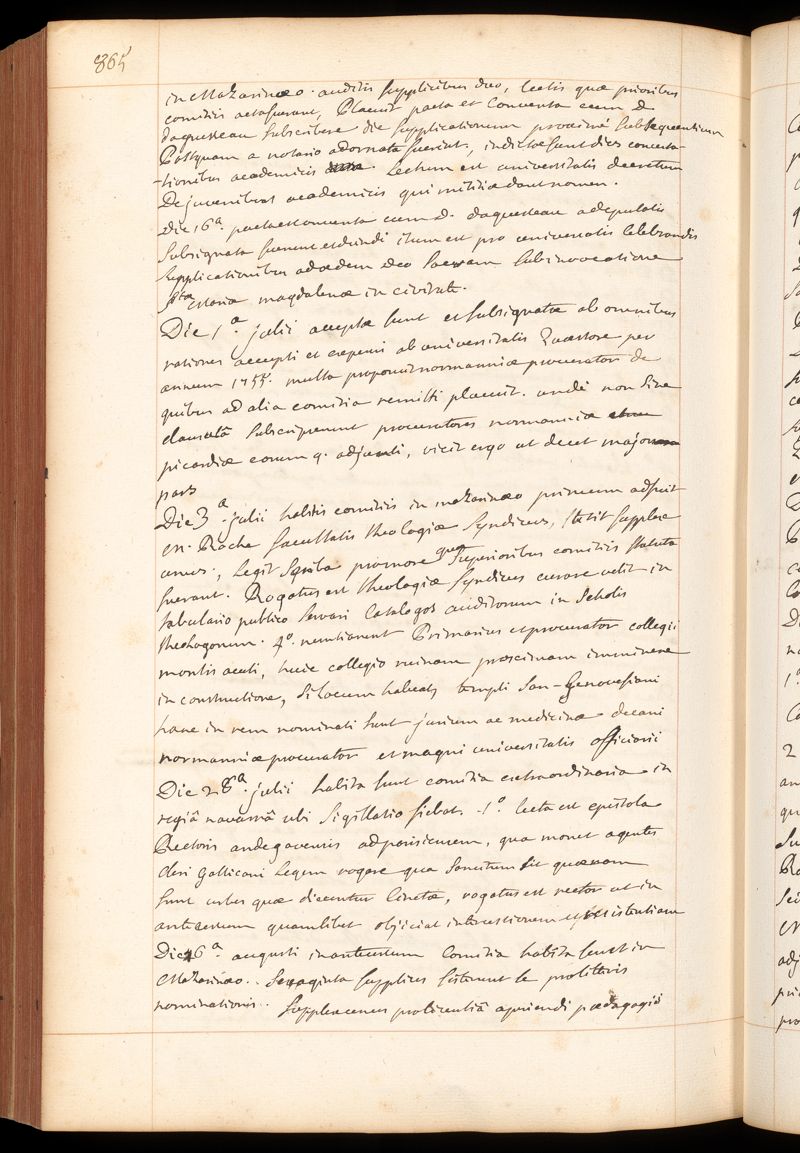 865
in Mazarinaeo. auditis supplicibus duo, lectis quae prioribus
comitiis acta fuerant, Placuit pacta et conventa cum D
daguesseau subscribere die supplicationum proximè subsequentium
Postquam a notario adornata fuerint, indictae sunt dies concerta-
-tionibus academicis Lectum est universitatis decretum
De juvenibus academicis qui militiae dant nomen.
Die 16a. pacta et conventa cum D. daguesseau a deputatis
subsignata fuerunt et dein itum est pro universitatis celebrandis
supplicationibus ad aedem deo sacram sub invocatione
Stae Maria magdalenae in civitate.
Die 1a. julii acceptae sunt et subsignatae ab omnibus
rationes accepti et expensi ab universitatis Quaestore per
annum 1755. multa proposuit normanniae procurator de
quibus ad alia comitia remitti placuit. undè non sine
clausulâ subscripserunt procuratores normanniae
picardiae eorum q. adjuncti, vicit ergo ut decet major
pars
Die 3a. julii habitis comitiis in mazarinaeo primum adfuit
M. Roche facultatis theologiae syndicus, stetit supplex
unus, Legit scriba promore quae superioribus comitiis statuta
fuerant. Rogatus est theologiae syndicus curare velit in
tabulario publico servari catalogos auditorum in scholis
theologorum. 4o. nuntiarunt Primarius et procurator collegii
montis acuti, huic collegio ruinam proximam imminere
in constructione, si locum habeat, templi san-Genovefiani
hanc in rem nominati sunt jurium ac medicinae decani
normanniae procurator et magni universitatis officiarii
Die 28a. julii habita sunt comitia extraordinaria in
regiâ navarrâ ubi sigillatio fiebat. 1o. lecta est epistola
Rectoris andegavensis ad parisiensem, qua monet agentes
cleri Gallicani legem rogare qua sancitum sit quaenam
sunt urbes quae dicuntur cinctae, rogatus est rector ut in
antecessum quamlibet objiciat intercessionem
Die 6a. augusti in antecessum comitia habita sunt in
Mazarinaeo. Sexaginta supplices steterunt se pro litteris
nominationis. supplex unus pro licentiâ aperiendi paedagogii